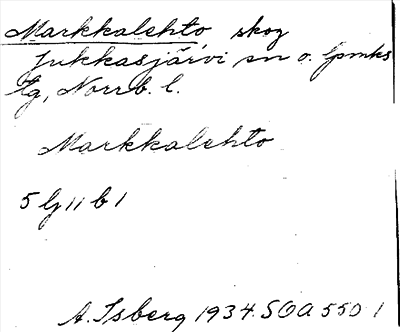 Markkalehto skog
Jukkasjärvi sn o. lpmks
tg, Norrb. l.
Markkalehto
5 lj 11 b 1
A. Isberg 1934. SOA 550 1